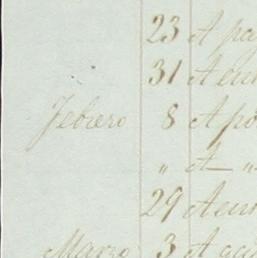 23 A pa
31 A en
Febrero 8 A po
" A "
29 A en
Marzo 3 A